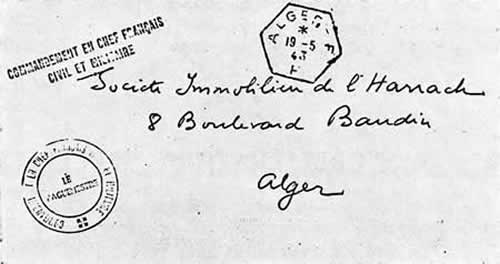 COMMANDEMENT EN CHEF FRANÇAIS
CIVIL ET MILITAIRE
ALGER
*
19-5
43
Société Immobilière de l'Harrach
8 Boulevard Baudin
Alger
EN CHEF FRANÇAIS
LE
VAGUEMESTRE